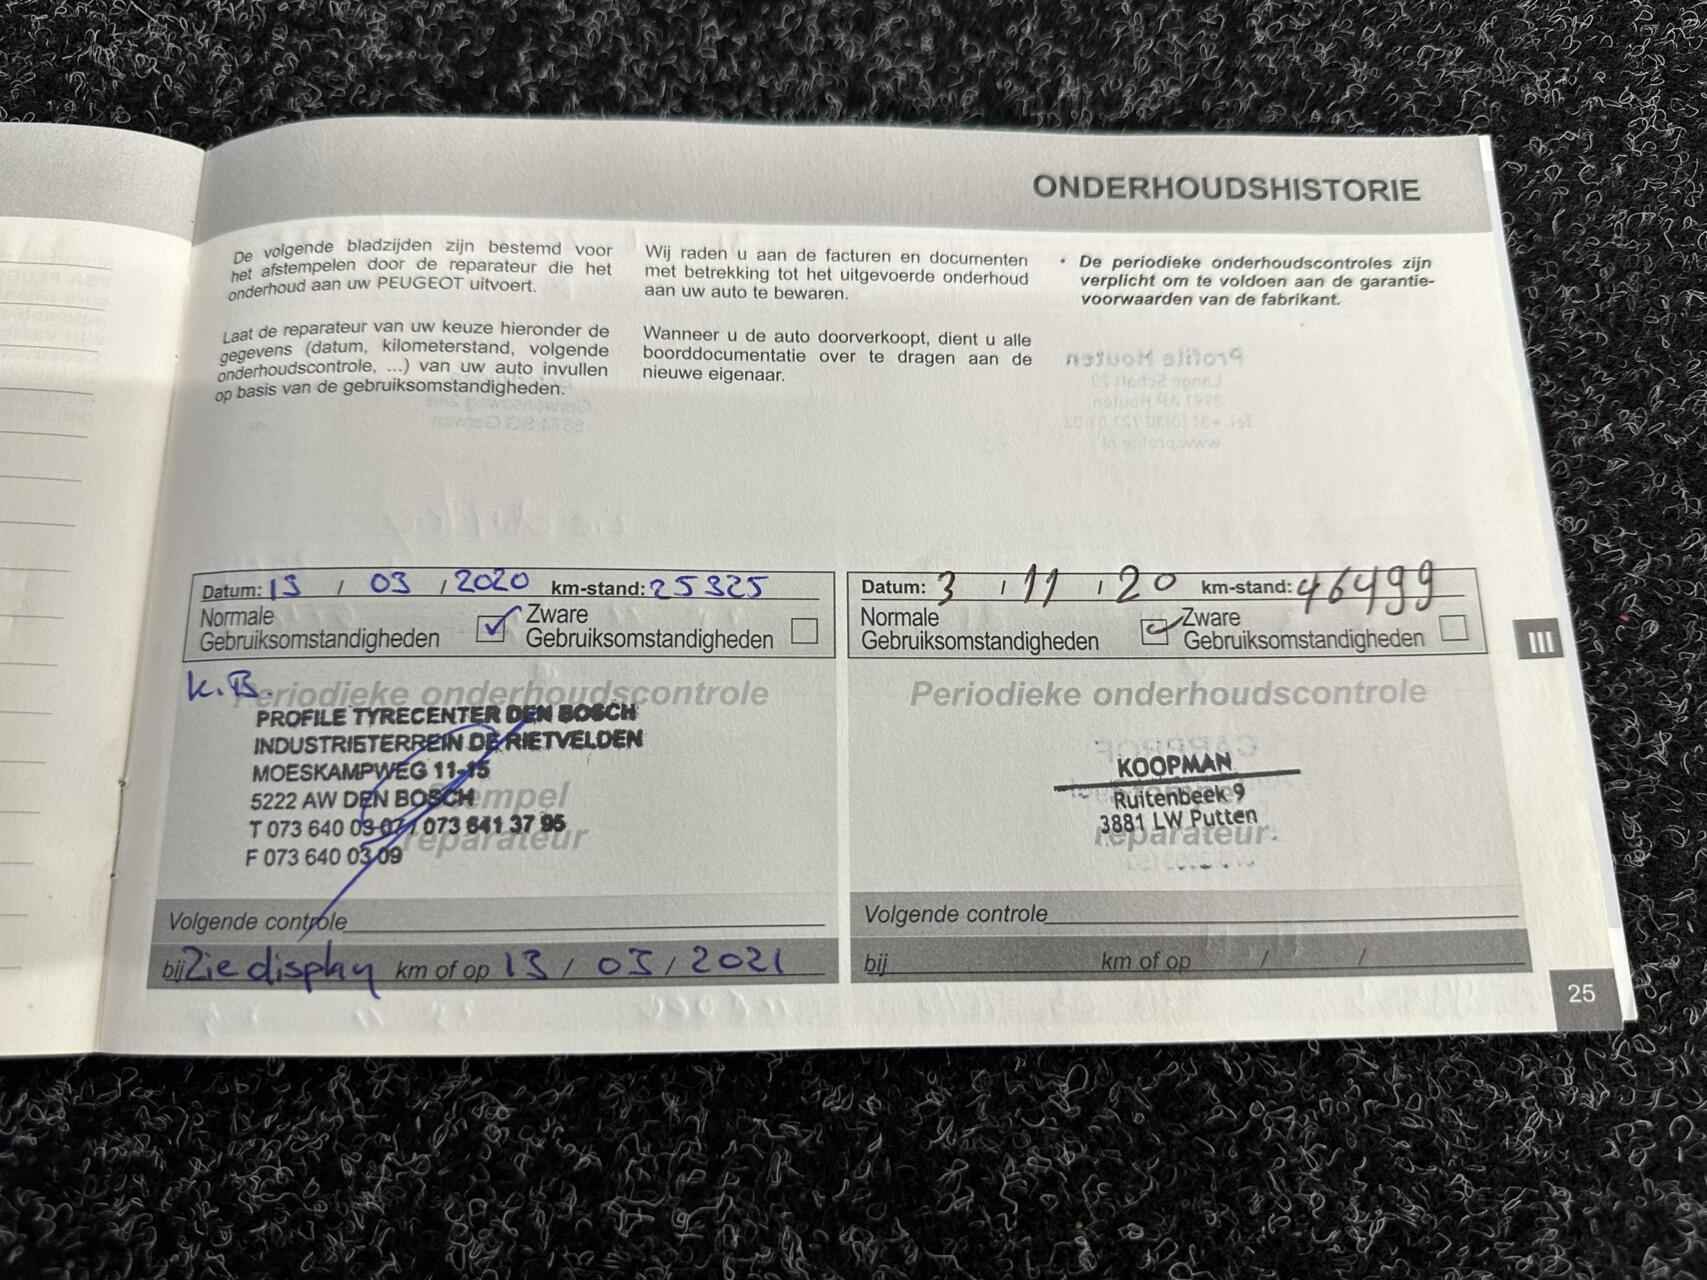 ONDERHOUDSHISTORIE
De volgende bladzijden zijn bestemd voor
het afstempelen door de reparateur die het
onderhoud aan uw PEUGEOT uitvoert.
Laat de reparateur van uw keuze hieronder de
gegevens (datum, kilometerstand, volgende
onderhoudscontrole, ...) van uw auto invullen
op basis van de gebruiksomstandigheden.
Wij raden u aan de facturen en documenten
met betrekking tot het uitgevoerde onderhoud
aan uw auto te bewaren.
Wanneer u de auto doorverkoopt, dient u alle
boorddocumentatie over te dragen aan de
nieuwe eigenaar.
• De periodieke onderhoudscontroles zijn
verplicht om te voldoen aan de garantie-
voorwaarden van de fabrikant.
Datum: 13 / 03 / 2020 km-stand: 25325
Normale
Gebruiksomstandigheden
Zware
Gebruiksomstandigheden
K.B.
Periodieke onderhoudscontrole
PROFILE TYRECENTER DEN BOSCH
INDUSTRIETERREIN DE RIETVELDEN
MOESKAMPWEG 11-15
5222 AW DEN BOSCH
T 073 640 03 07 / 073 641 37 95
F 073 640 03 09
reparateur
Volgende controle
bij Zie display km of op 13 / 03 / 2021
Datum: 3 / 11 / 20 km-stand: 46499
Normale
Gebruiksomstandigheden
Zware
Gebruiksomstandigheden
Periodieke onderhoudscontrole
KOOPMAN
Ruitenbeek 9
3881 LW Putten
reparateur
Volgende controle
bij km of op / /
III
25